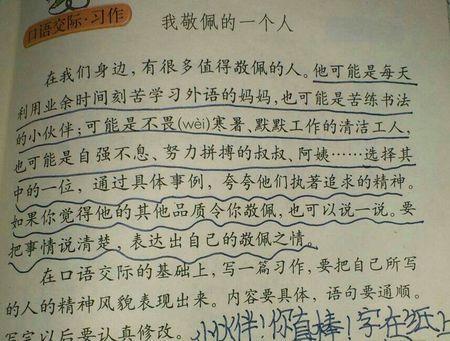 口语交际·习作
我敬佩的一个人
在我们身边，有很多值得敬佩的人。他可能是每天
利用业余时间刻苦学习外语的妈妈，也可能是苦练书法
的小伙伴；可能是不畏(wèi)寒暑、默默工作的清洁工人，
也可能是自强不息、努力拼搏的叔叔、阿姨……选择其
中的一位，通过具体事例，夸夸他们执著追求的精神。
如果你觉得他的其他品质令你敬佩，也可以说一说。要
把事情说清楚，表达出自己的敬佩之情。
在口语交际的基础上，写一篇习作，要把自己所写
的人的精神风貌表现出来。内容要具体，语句要通顺。
写完以后要认真修改。
小伙伴！你真棒！字在纸上